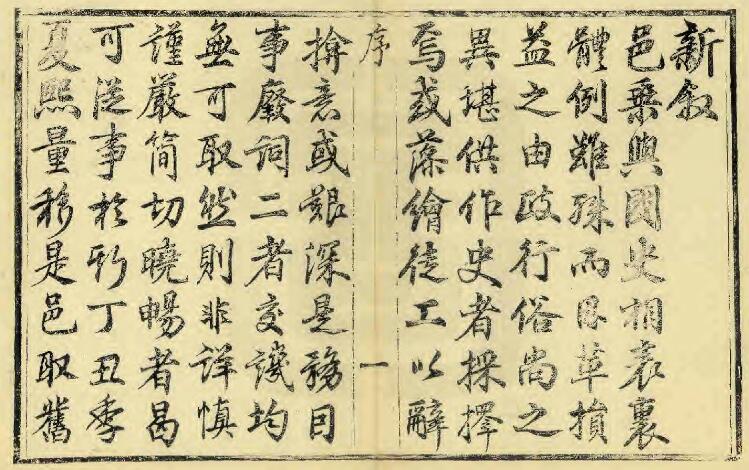 新叙
邑乗與國史相表裏
體例雖殊而因革損
益之由政行俗尚之
異堪供作史者採擇
焉或藻繪徒工以辭
序
一
揜意或艱深是務因
事廢詞二者交譏均
無可取然則非詳慎
謹嚴简切曉暢者曷
可從事於斯丁丑季
夏熙量移是邑取舊